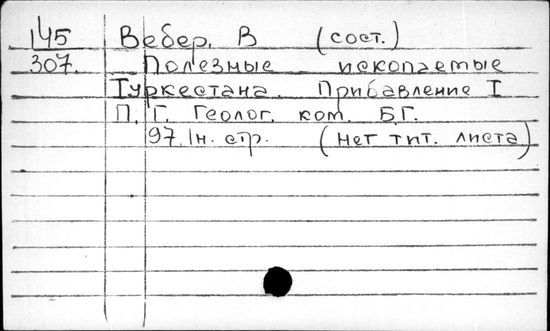 145 Вебер, В (сост.)
307. Полезные ископаемые
Туркестана. Прибавление I
П, Г. Геолог. ком. Б.Г.
97, Iн. стр. (нет тит. листа)